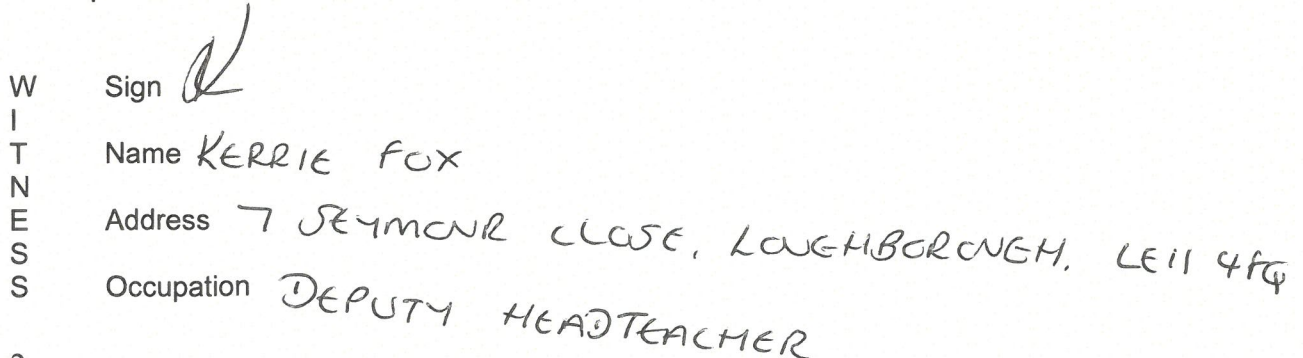 WITNESS
Sign
Name KERRIE FOX
Address 7 SEYMOUR CLOSE, LOUGHBOROUGH. LE11 4FQ
Occupation DEPUTY HEADTEACHER